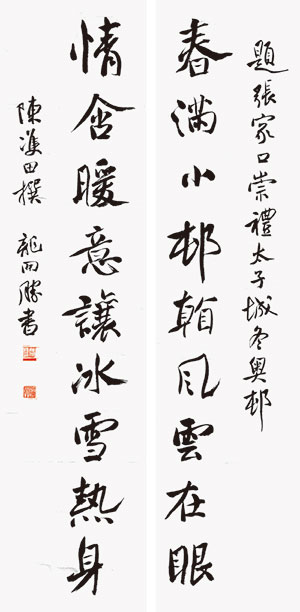 題張家口崇禮太子城冬奧邨
春滿小邨風雲在眼
情含暖意讓冰雪熱身
陳田撰 龍勝書